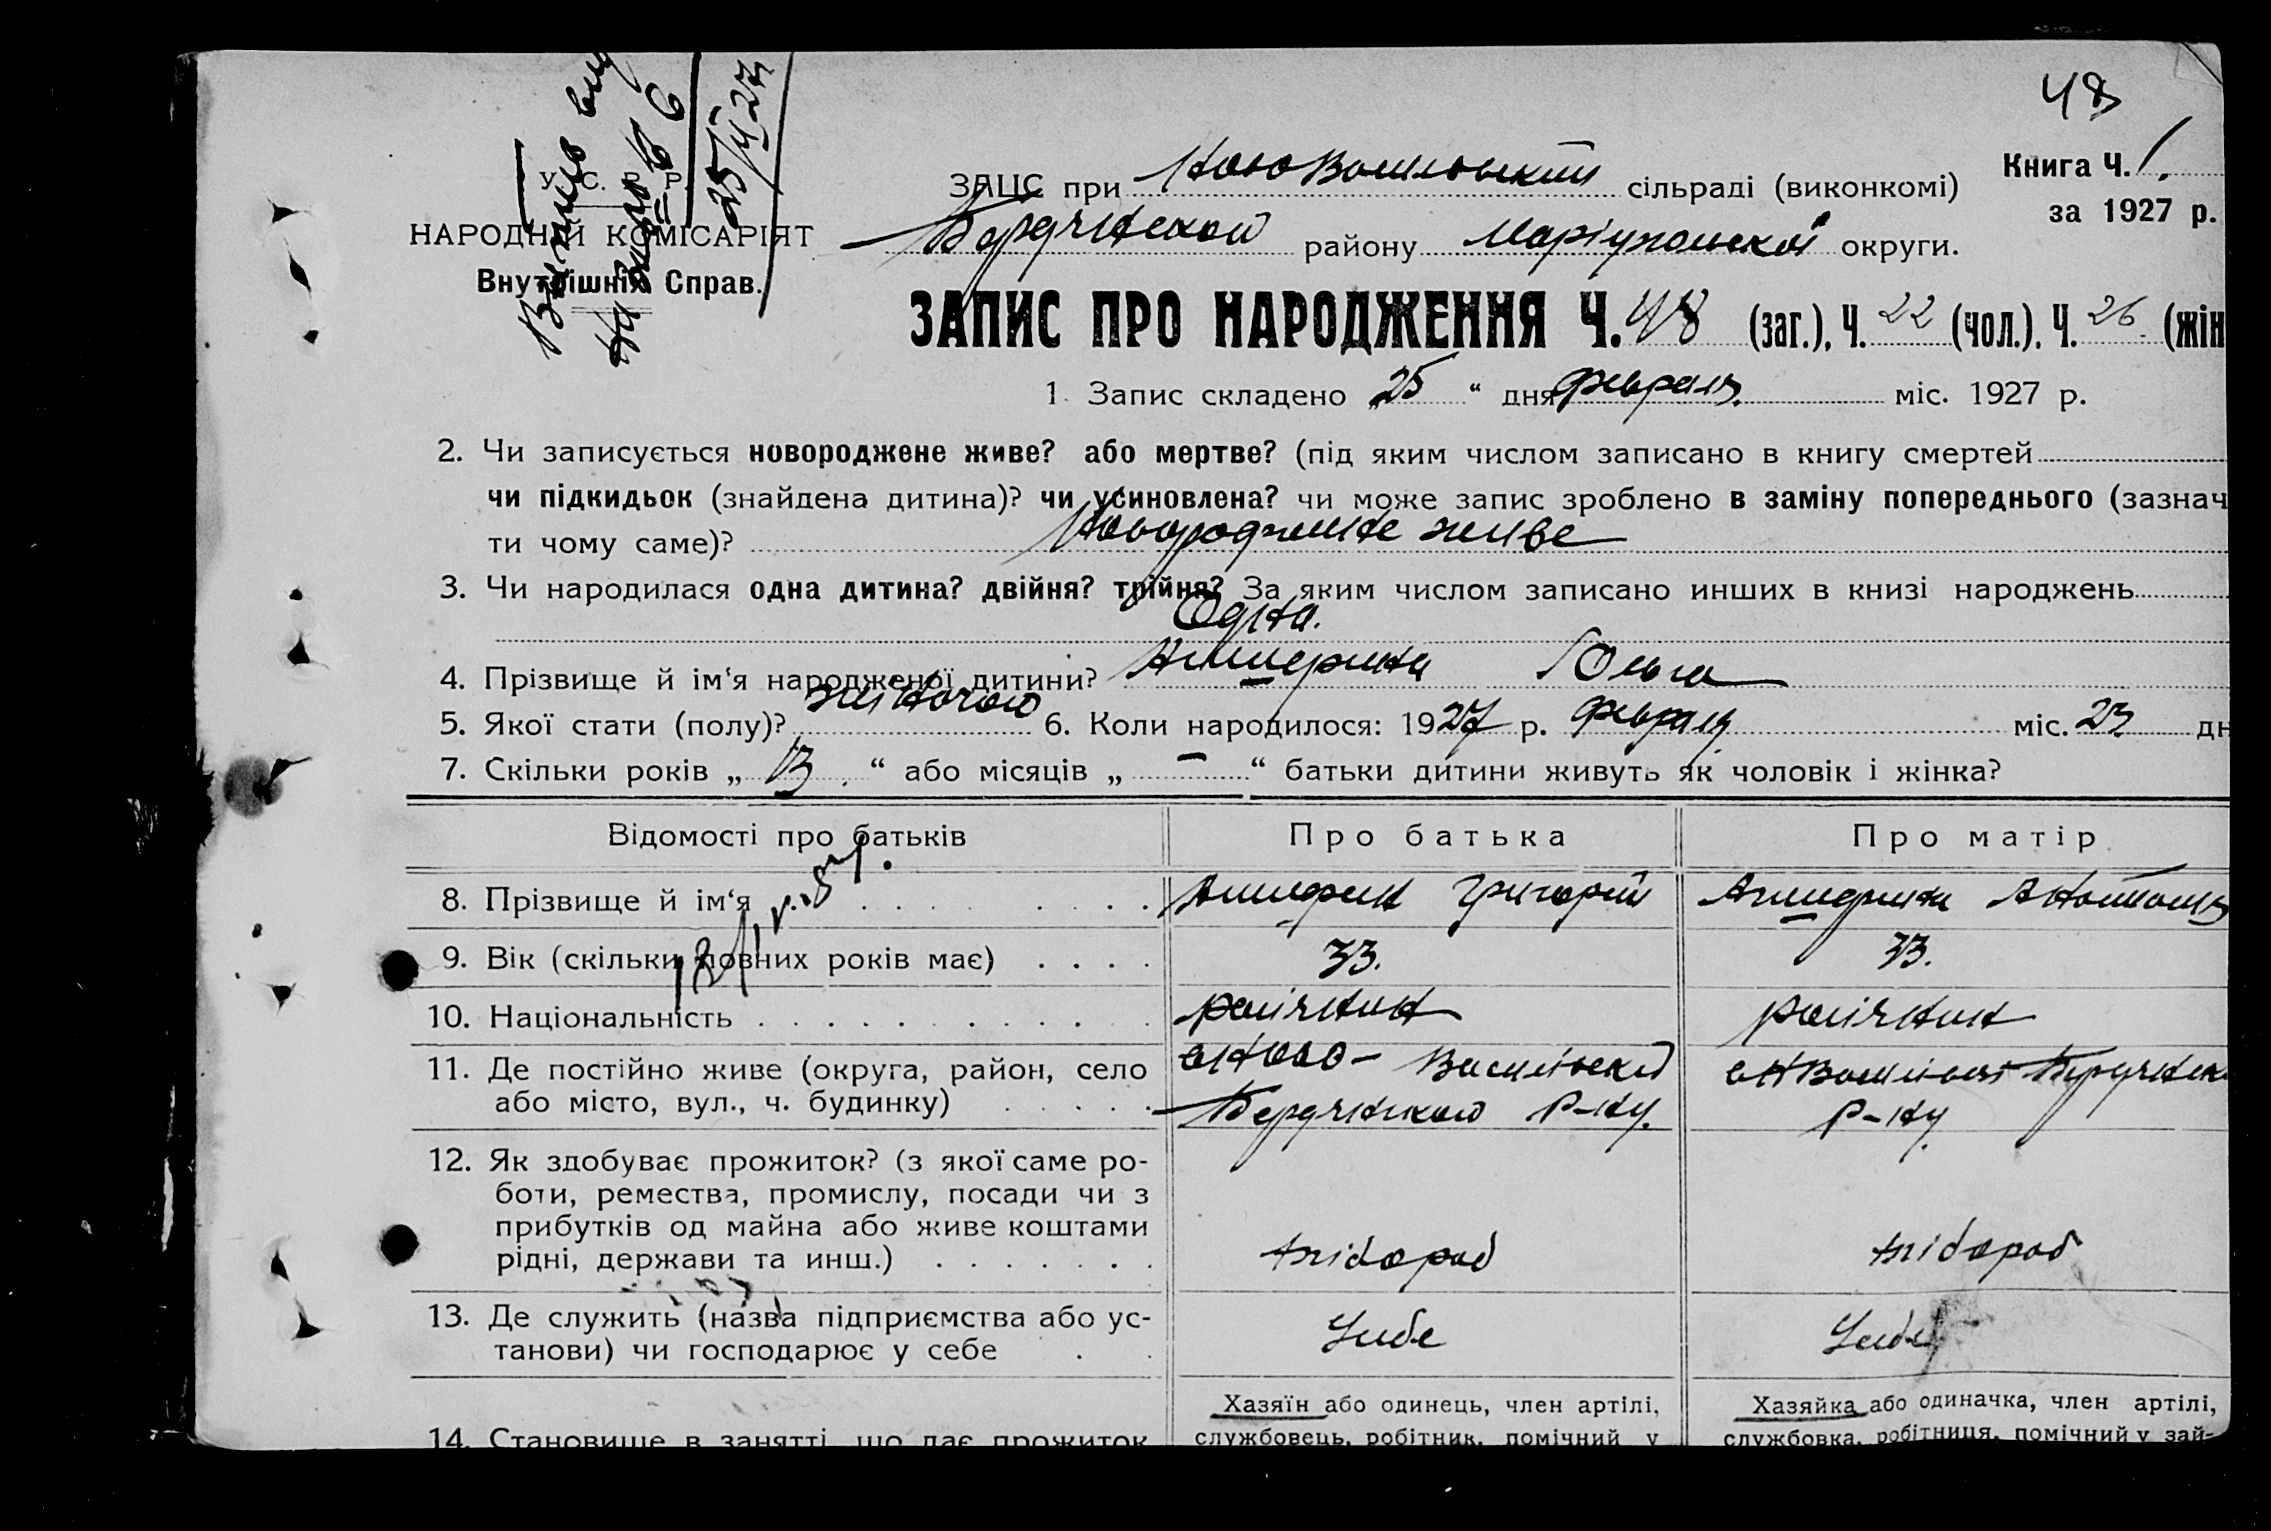 48
Витяг
25/II 27
У. С. Р. Р.
НАРОДНІЙ КОМІСАРІЯТ
Внутрішніх Справ.
Книга Ч. 1.
за 1927 р.
ЗАЦС при Ново Васильевкій сільраді (виконкомі)
Бердянской району Маріупольскої округи.
ЗАПИС ПРО НАРОДЖЕННЯ Ч. 48 (заг.), Ч. 22 (чол.), Ч. 26 (жін
1. Запис складено „25“ дня февраля міс. 1927 р.
2. Чи записується новороджене живе? або мертве? (під яким числом записано в книгу смертей
чи підкидьок (знайдена дитина)? чи усиновлена? чи може запис зроблено в заміну попереднього (зазнач
ти чому саме)? Новороджене живе
3. Чи народилася одна дитина? двійня? трійня? За яким числом записано инших в книзі народжень
Одна.
4. Прізвище й ім‘я народженої дитини? Ольга
5. Якої стати (полу)? жіночого 6. Коли народилося: 1927 р. февраля міс. 23 дн
7. Скільки років „13.“ або місяців „—“ батьки дитини живуть як чоловік і жінка?
Відомості про батьків Про батька Про матір
8. Прізвище й ім‘я Григорій
9. Вік (скільки повних років має) 33. 33.
10. Національність росіянин росіянин
11. Де постійно живе (округа, район, село
або місто, вул., ч. будинку)
с Ново-Васильевка
Бердянского Р-ну.
Р-ну
12. Як здобуває прожиток? (з якої саме ро-
боти, ремества, промислу, посади чи з
прибутків од майна або живе коштами
рідні, держави та инш.) хлібороб хлібороб
13. Де служить (назва підприємства або ус-
танови) чи господарює у себе
У себе У себе
14. Становище в занятті, що дає прожиток
Хазяїн або одинець, член артілі,
службовець, робітник, помічний у
Хазяйка або одиначка, член артілі,
службовка, робітниця, помічний у зай-